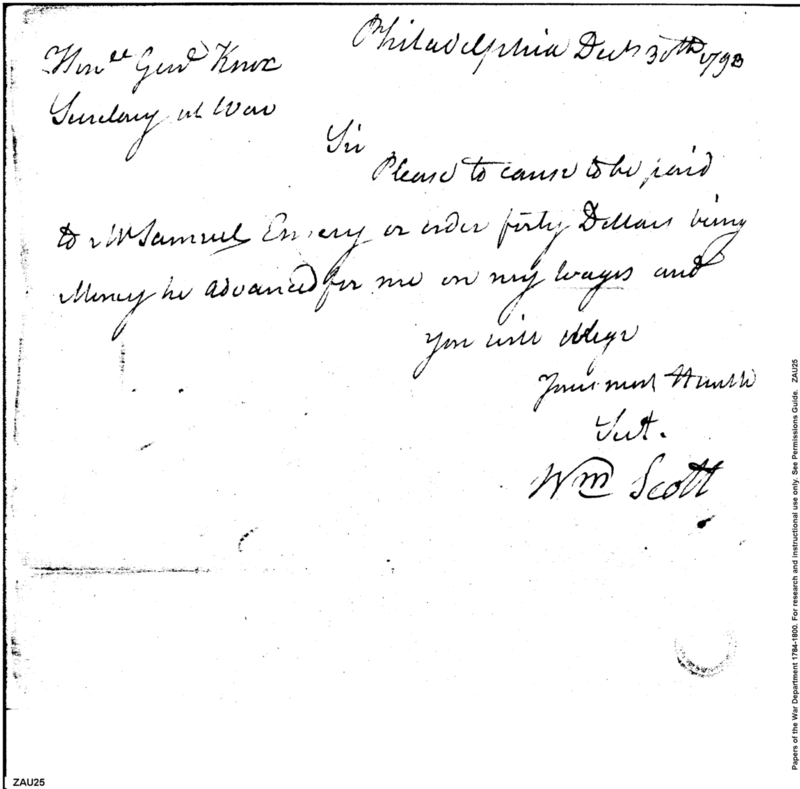 Philadelphia Decr 30th 1793
Honble Genl Knox
Secretary at War
Sir
Please to cause to be paid
to Mr Samuel Emery or order forty Dollars being
Money he advanced for me on my Wages and
you will oblige
Your most Humble
Sert.
Wm Scott
Papers of the War Department 1784-1800. For research and instructional use only. See Permissions Guide. ZAU25
ZAU25